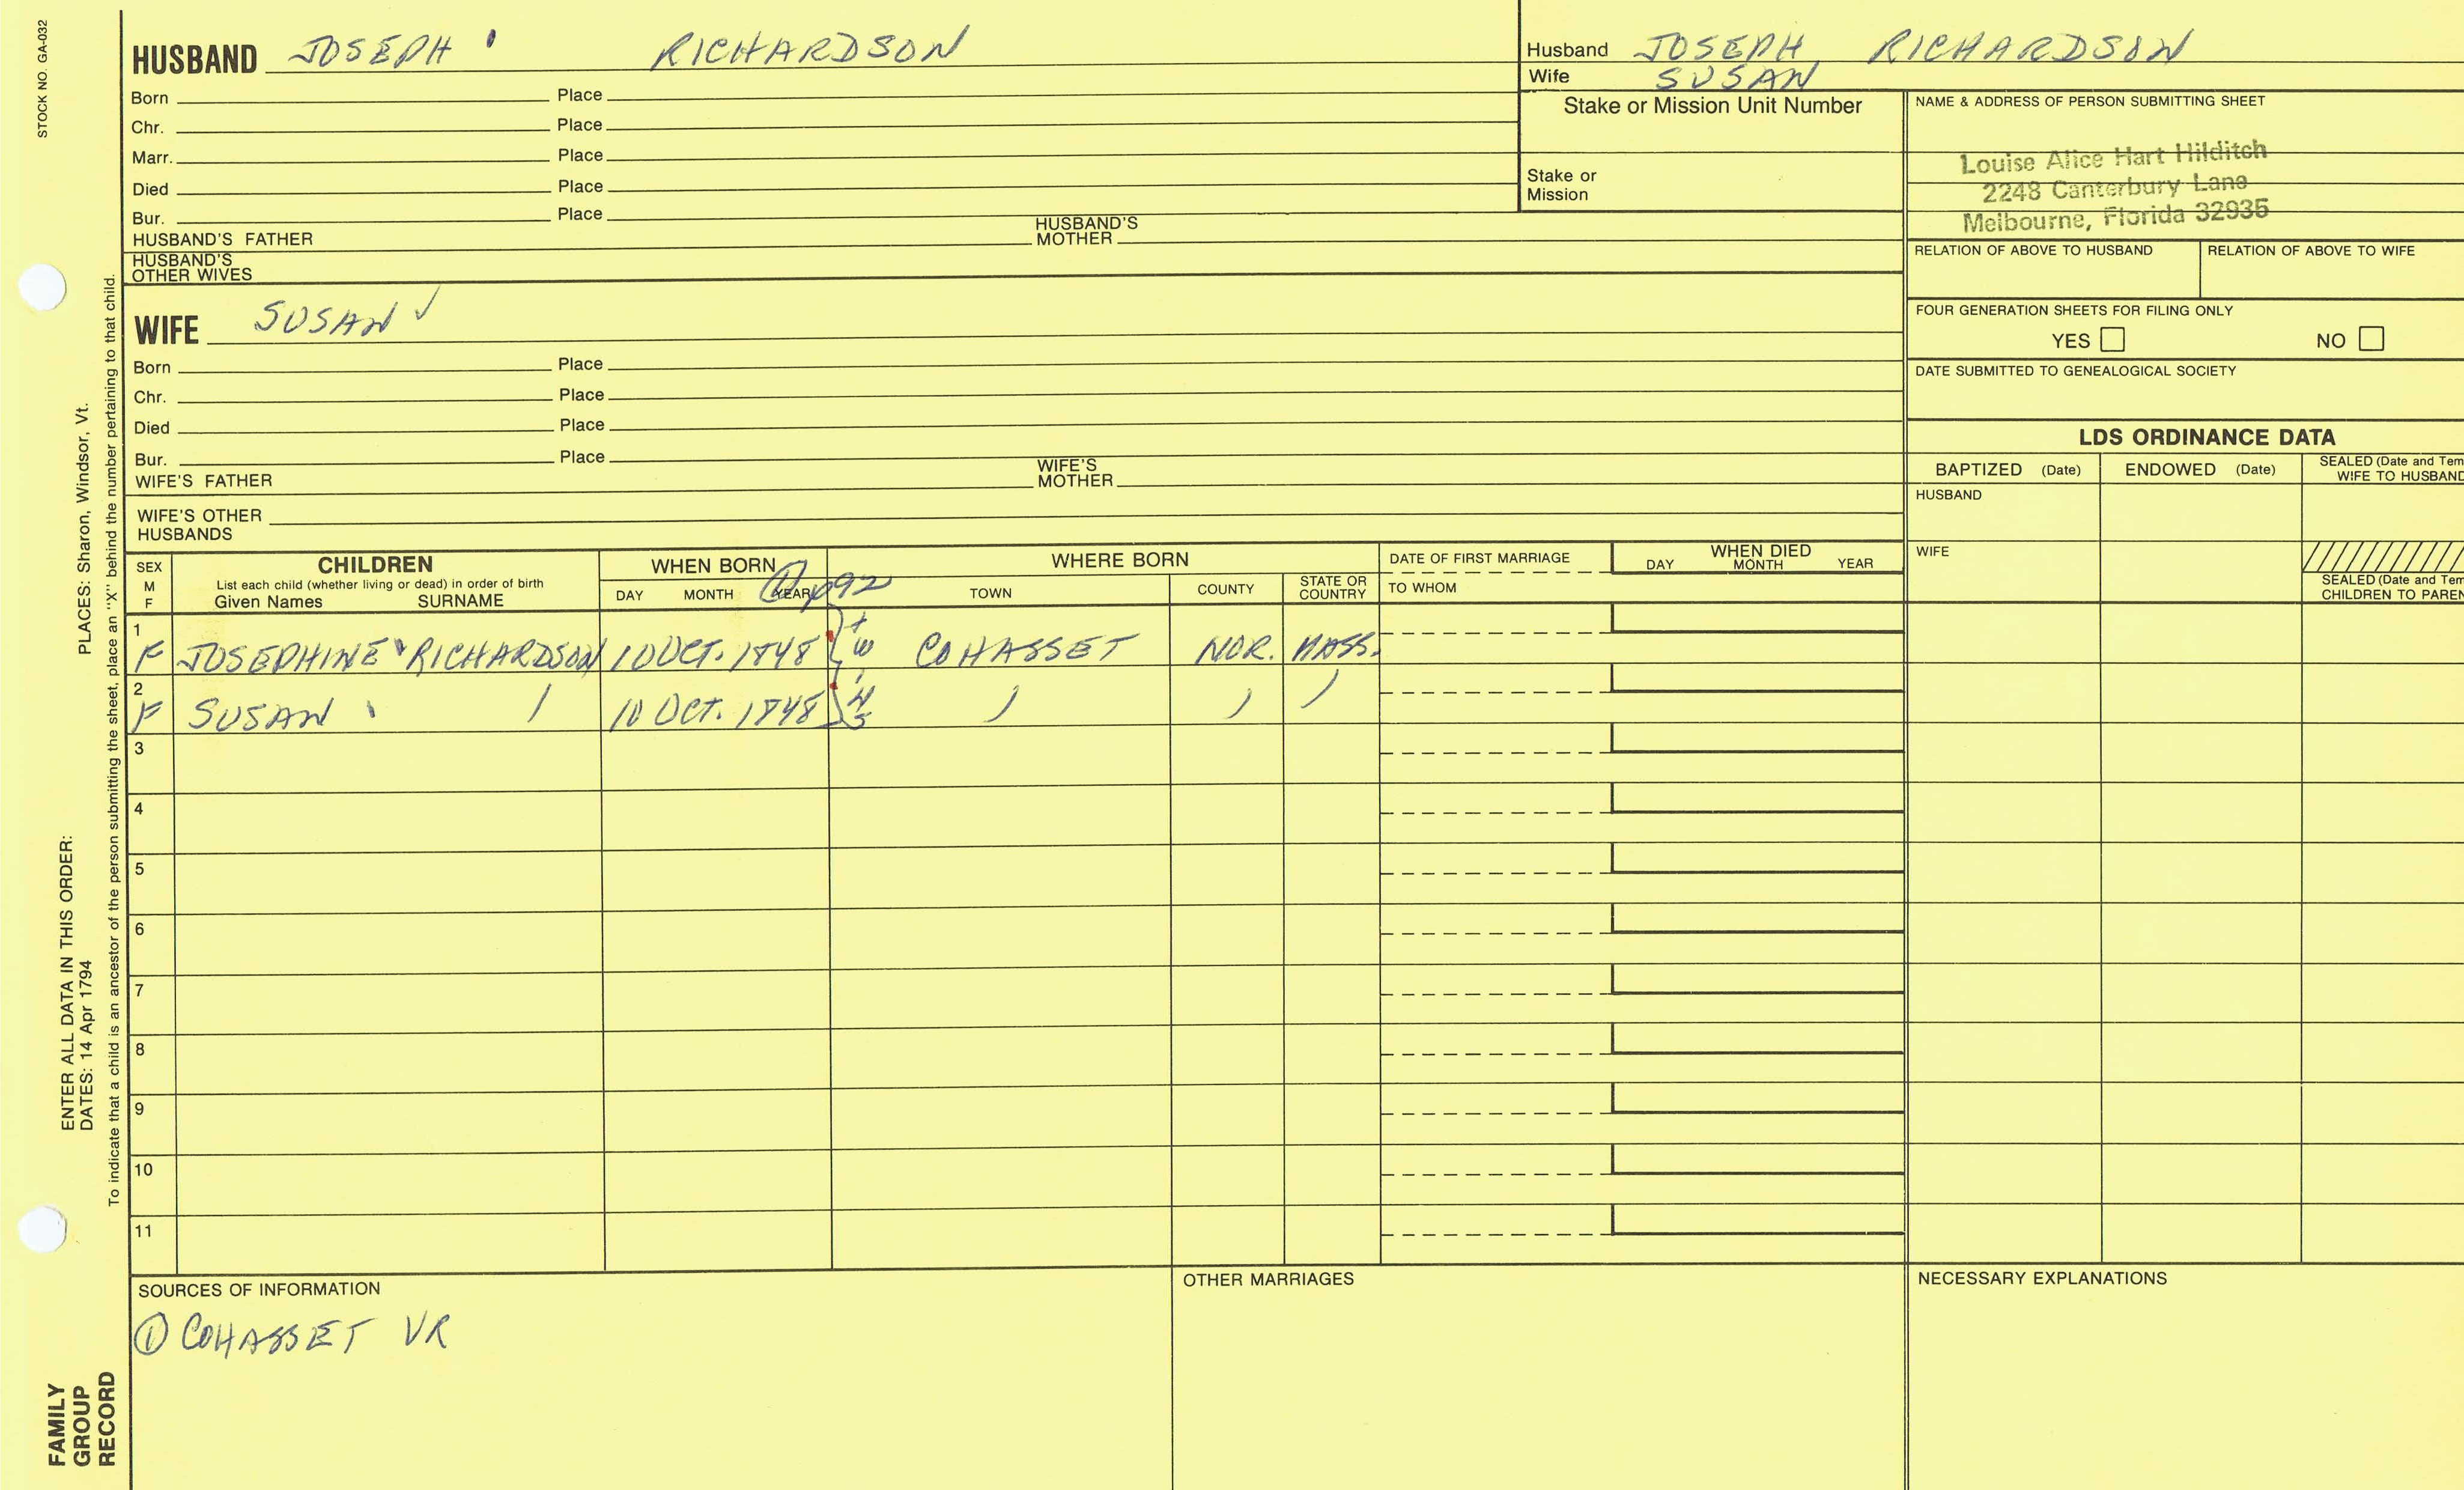 STOCK NO. GA-032
HUSBAND JOSEPH RICHARDSON
Born Place
Chr. Place
Marr. Place
Died Place
Bur. Place
HUSBAND'S FATHER HUSBAND'S MOTHER
HUSBAND'S OTHER WIVES
WIFE SUSAN
Born Place
Chr. Place
Died Place
Bur. Place
WIFE'S FATHER WIFE'S MOTHER
WIFE'S OTHER HUSBANDS
Husband JOSEPH RICHARDSON
Wife SUSAN
Stake or Mission Unit Number
Stake or Mission
NAME & ADDRESS OF PERSON SUBMITTING SHEET
Louise Alice Hart Hilditch
2248 Canterbury Lane
Melbourne, Florida 32935
RELATION OF ABOVE TO HUSBAND RELATION OF ABOVE TO WIFE
FOUR GENERATION SHEETS FOR FILING ONLY
YES NO
DATE SUBMITTED TO GENEALOGICAL SOCIETY
LDS ORDINANCE DATA
BAPTIZED (Date) ENDOWED (Date) SEALED (Date and Tem
WIFE TO HUSBAND
HUSBAND
WIFE
SEALED (Date and Tem
CHILDREN TO PAREN
SEX M F
CHILDREN
List each child (whether living or dead) in order of birth
Given Names SURNAME
WHEN BORN
DAY MONTH YEAR
① p92
WHERE BORN
TOWN COUNTY STATE OR COUNTRY
DATE OF FIRST MARRIAGE
TO WHOM
WHEN DIED
DAY MONTH YEAR
1 F JOSEPHINE RICHARDSON 10 OCT. 1848 COHASSET NOR. MASS.
2 F SUSAN / 10 OCT. 1848 / / /
3
4
5
6
7
8
9
10
11
SOURCES OF INFORMATION
① COHASSET VR
OTHER MARRIAGES
NECESSARY EXPLANATIONS
ENTER ALL DATA IN THIS ORDER:
DATES: 14 Apr 1794 PLACES: Sharon, Windsor, Vt.
To indicate that a child is an ancestor of the person submitting the sheet, place an "X" behind the number pertaining to that child.
FAMILY
GROUP
RECORD